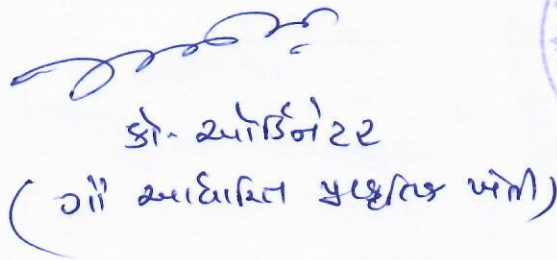 કો-ઓર્ડિનેટર
(ગૌ આધારિત પ્રાકૃતિક ખેતી)